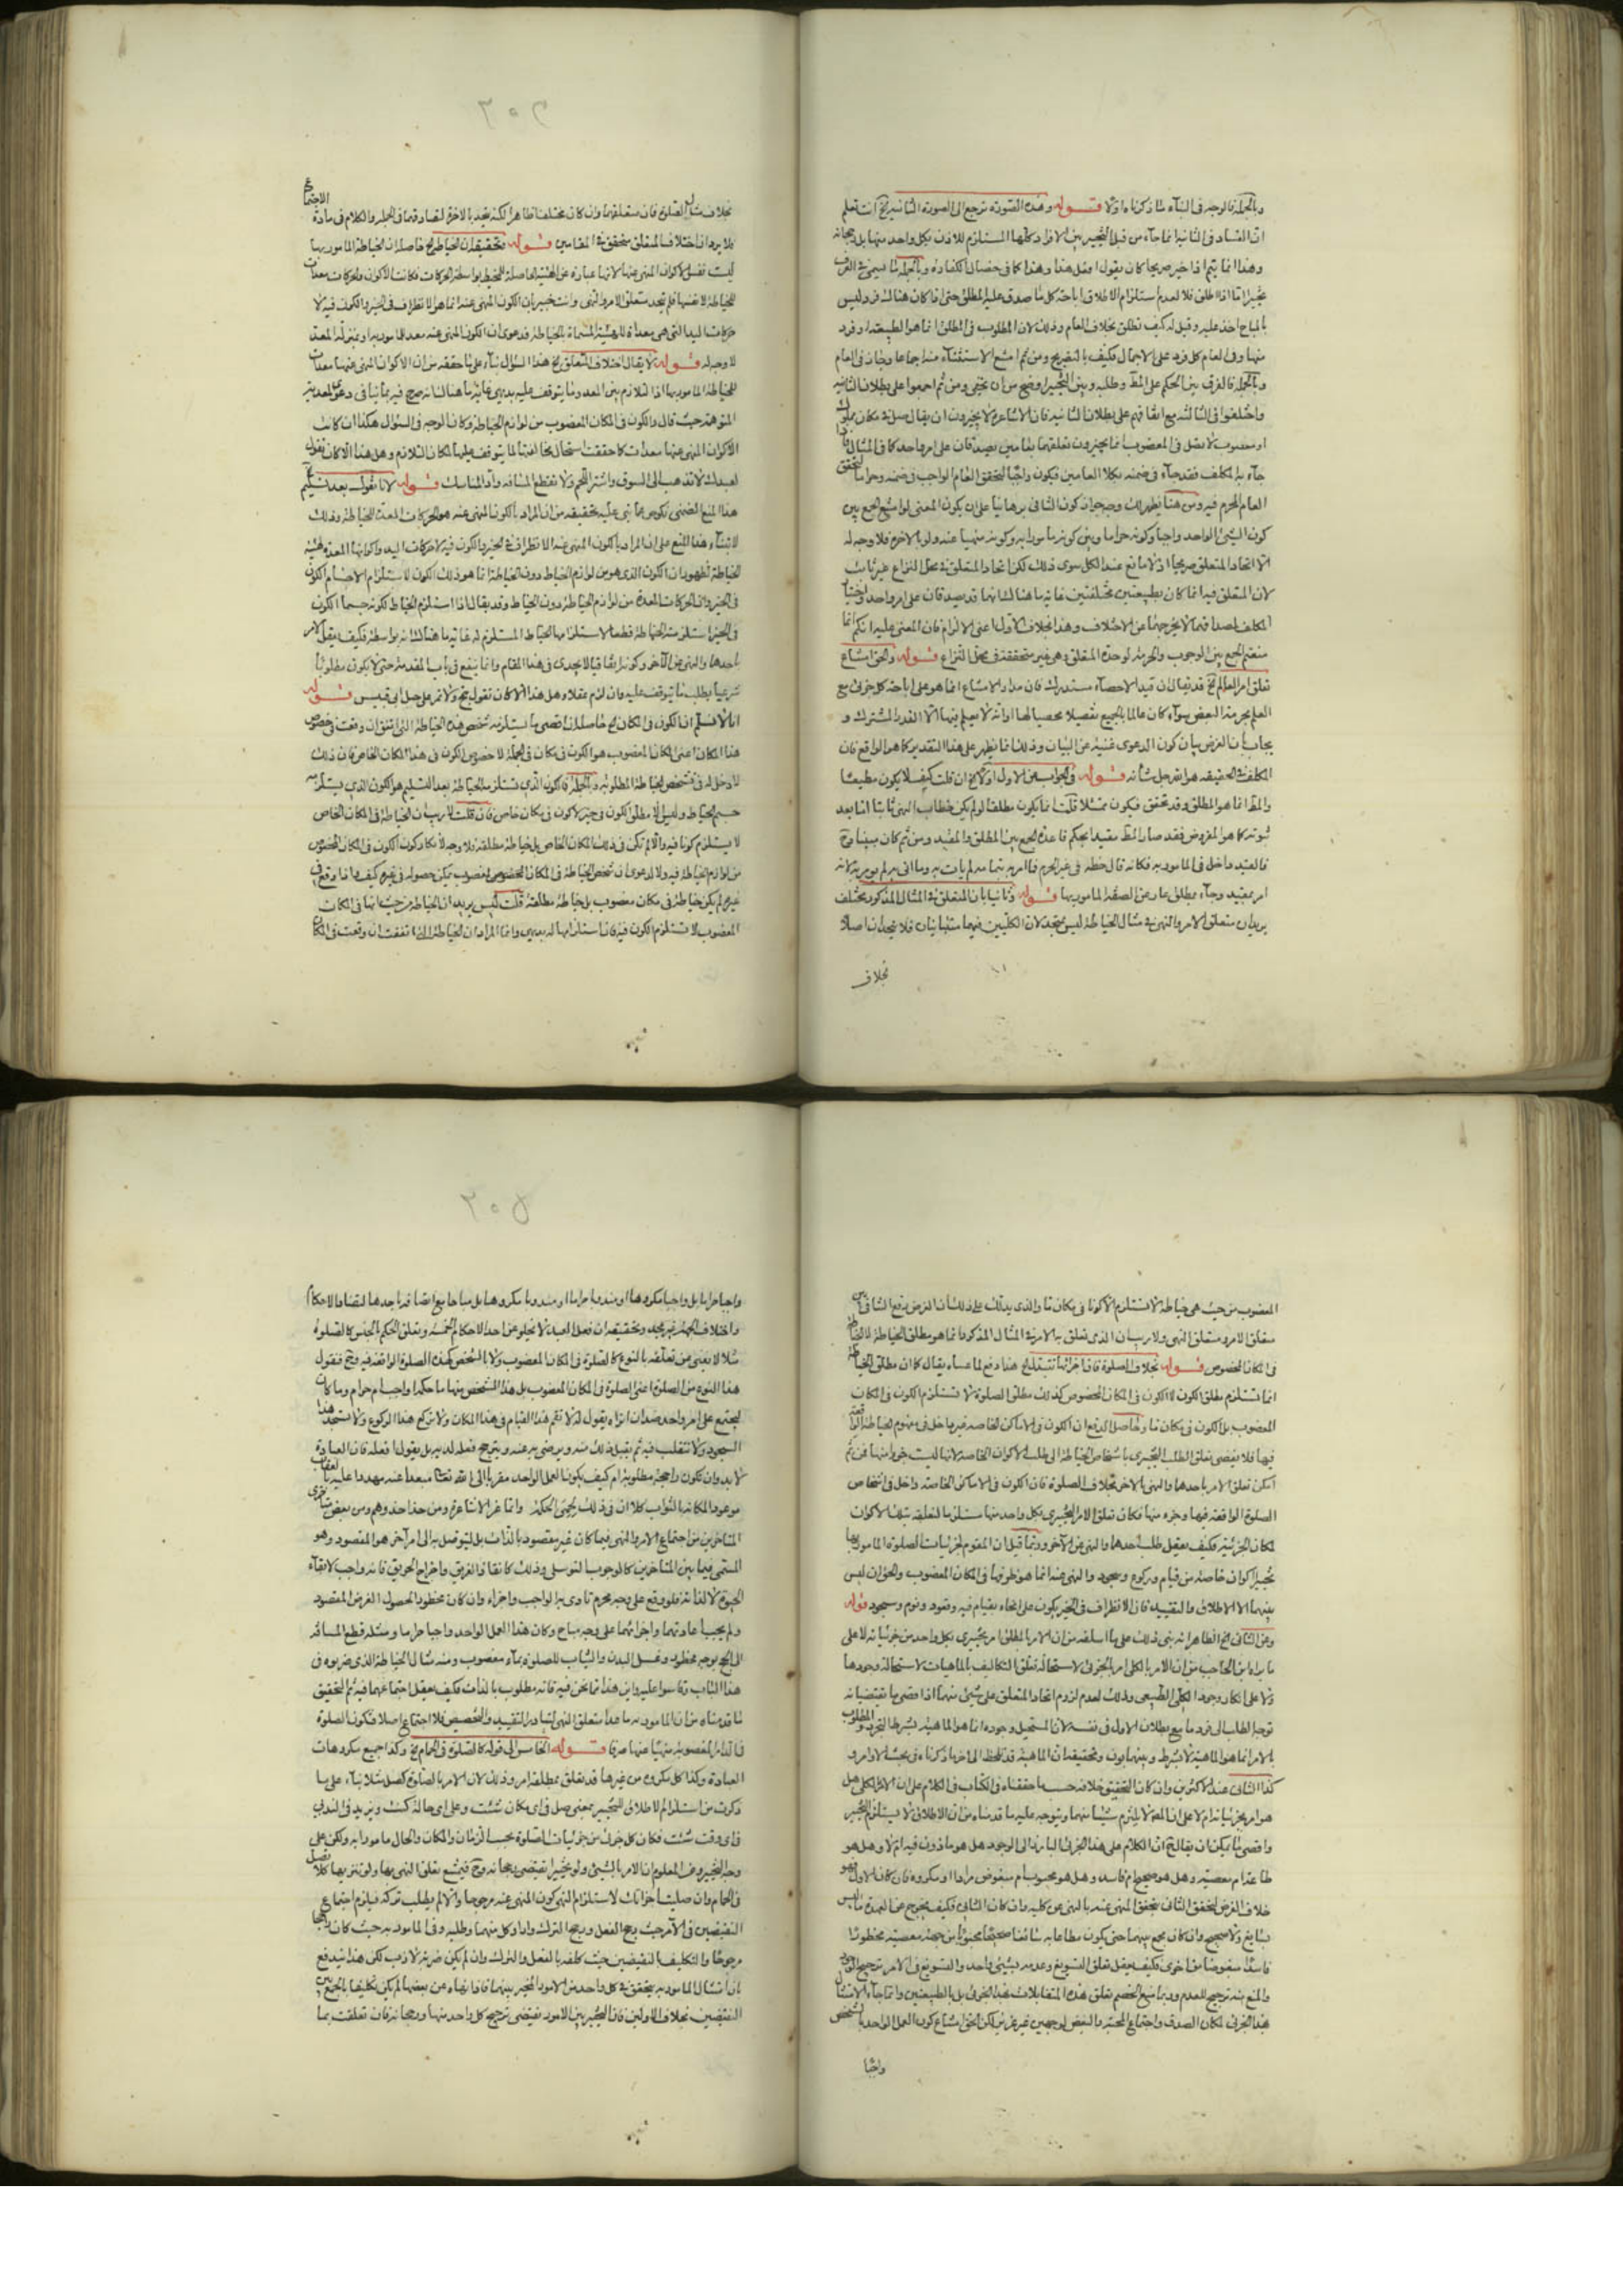 وبالجملة فالوجه في البناء ما ذكرناه اولا قوله وهذه الصورة ترجع الى الصورة الثانية الخ انت تعلم
ان الفساد في الثانية انما جاء من قبل التخيير بين الافراد كلها المستلزم للاذن بكل واحد منها بل رجحانه
وهذا انما يتم اذا خير صريحا كان يقول افعل هذا وهذا كما في خصال الكفارة وبالجملة ما سمي في العرف
تخييرا اما اذا اطلق فلا لعدم استلزام الاطلاق اباحة كل ما صدق عليه المطلق حتى اذا كان هنالك فرد ليس
بالمباح اخذ عليه وقيل له كيف تطلق بخلاف العام وذلك لان المطلوب في المطلق انما هو الطبيعة او فرد
منها وفي العام كل فرد على الاجمال فكيف بالتصريح ومن ثم امتنع الاستثناء منه اجماعا وجاز في العام
وبالجملة فالفرق بين الحكم على المط وطلبه وبين التخيير اوضح من ان يخفى ومن ثم اجمعوا على بطلان الثانية
واختلفوا في الثالثة مع اتفاقهم على بطلان الثانية فان الاشاعرة لا يجيزون ان يقال صل في مكان مملوك
او مغصوب لا تصل في المغصوب انما يجيزون تعلقهما بعامين يصدقان على امر واحد كما في المثال فاذا
جاء به المكلف فقد جاء في ضمنه بكلا العامين فيكون واجبا لتحقق العام الواجب في ضمنه وحراما لتحقق
العام المحرم فيه ومن هنا يظهر لك وجه جواز كون الثاني برهانيا على ان يكون المعنى لو امتنع الجمع بين
كون الشيء الواحد واجبا وكونه حراما وبين كونه مأمورا به وكونه منهيا عنه ولو بالاخرة فلا وجه له
الا اتحاد المتعلق صريحا اذ لا مانع عند الكل سوى ذلك لكن اتحاد المتعلق في محل النزاع غير ثابت
لان المتعلق فيه انما كان بطبيعتين مختلفتين غاية ما هنالك انهما قد يصدقان على امر واحد واختيار
المكلف لمصداقهما لا يخرجهما عن الاختلاف وهذا بخلاف الاول اعني الالزام فان المعنى عليه انكم انما
منعتم الجمع بين الوجوب والحرمة لوحدة المتعلق وهي غير متحققة في محل النزاع قوله والحق امتناع
تعلق امر العالم الخ قد يقال ان قيد الاحصاء مستدرك فان مدار الامتناع انما هو على اباحة كل جزئي مع
العلم بحرمة البعض سواء كان عالما بالجميع تفصيلا محصيا لها او انه لا يعلم منها الا القدر المشترك و
يجاب بأن الغرض بيان كون الدعوى غنية عن البيان وذلك انما يظهر على هذا التقدير كما هو الواقع فان
المكلف في الحقيقة هو الله جل شأنه قوله في الجواب عن الاول اولا الخ ان قلت كيف لا يكون مطيعا
والمط انما هو المطلق وقد تحقق فيكون ممتثلا قلت انما يكون مطلقا لو لم يكن خطاب النهي ثابتا اما بعد
ثبوته كما هو المفروض فقد صار المط مقيدا بحكم قاعدة الجمع بين المطلق والمقيد ومن ثم كان مبينا وح
فالقيد داخل في المأمور به فكأنه قال خطه في غير الحرم فما امر به بتمامه لم يأت به وما اتى به لم يؤمر به لانه
امر بمقيد وجاء بمطلق عار عن الصفة المأمور بها قوله وثانيا بان المتعلق في المثال المذكور مختلف
يريد ان متعلق الامر والنهي في مثال الخياطة ليس بمتحد لان الكليين فيهما متباينان فلا يتحدان اصلا
بخلاف
٢٥٤
بخلاف مثال الصلوة فان متعلقهما وان كان مختلفا ظاهرا لكنه يتحد بالاخرة لتصادقهما في الجملة والكلام في مادة الاجتماع
فلا يرد ان اختلاف المتعلق متحقق في المقامين قوله وتحقيقه ان الخياطة الخ حاصله ان الخياطة المأمور بها
ليست نفس الاكوان المنهي عنها لانها عبارة عن الهيئة الحاصلة للمخيط بواسطة الحركات فكانت الاكوان والحركات معدات
للخياطة لا عينها فلم يتحد متعلق الامر والنهي وانت خبير بان الكون المنهي عنه انما هو الانظراف في الحيز والكون فيه لا
حركات اليد التي هي معدة للهيئة المسماة بالخياطة فدعوى ان الكون المنهي عنه معد للمأمور به او بمنزلة المعد
لا وجه له قوله لا يقال اختلاف المتعلق الخ هذا السؤال بناء على ما حققه من ان الاكوان المنهي عنها معدات
للخياطة المأمور بها اذ التلازم بين المعد وما يتوقف عليه بديهي غاية ما هنالك انه صرح فيه بما ينافي دعوى المعدية
المتوهمة حيث قال والكون في المكان المغصوب من لوازم الخياطة وكان الوجه في السؤال هكذا ان كانت
الاكوان المنهي عنها معدات كما حققت استحال مخالفتها لما يتوقف عليها لمكان التلازم وهل هذا الا كأن تقول
لعبدك لا تذهب الى السوق واشتر اللحم ولا تقطع المسافة وأد المناسك قوله لانا نقول بعد تسليم
هذا المنع الضمني نكوص عما بنى عليه تحقيقه من ان المراد بالكون المنهي عنه هو الحركات المعدة للخياطة وذلك
لابتناء هذا المنع على ان المراد بالكون المنهي عنه الانظراف في الحيز والكون فيه لا حركات اليد واكوانها المعدة لهيئة
الخياطة لظهور ان الكون الذي هو من لوازم الخياط دون الخياطة انما هو ذلك الكون لاستلزام الاجسام الكون
في الحيز وان الحركات المعدة من لوازم الخياطة دون الخياط وقد يقال اذا استلزم الخياط لكونه جسما الكون
في الحيز استلزمته الخياطة قطعا لاستلزامها الخياط المستلزم له غاية ما هنالك انه بواسطة فكيف يعقل الامر
باحدها والنهي عن الاخر وكونه اتفاقيا لا يجدي في هذا المقام وانما ينفع في باب المقدمة حتى لا يكون مطلوبا
شرعيا بطلب ما يتوقف عليه وان لزم عقلا وهل هذا الا كأن تقول حج ولا تمر على جبل ابي قبيس قوله
انا لا نسلم ان الكون في المكان الخ حاصله ان اقصى ما يستلزمه شخص هذه الخياطة التي اتفق ان وقعت في خصوص
هذا المكان اعني المكان المغصوب هو الكون في مكان في الجملة لا خصوص الكون في هذا المكان الخاص فان ذلك
لا دخل له في شخص الخياطة المطلوبة وبالجملة فالكون الذي تستلزمه الخياطة بعد التسليم هو الكون الذي يستلزمه
جسم الخياط وليس الا مطلق الكون في حيز لا كون في مكان خاص فان قلت لا ريب ان الخياطة في المكان الخاص
لا يستلزم كونا فيه والا لم تكن في ذلك المكان الخاص بل خياطة مطلقة فلا وجه لانكار كون الكون في المكان المخصوص
من لوازم الخياطة فيه ولا لدعوى ان شخص الخياطة في المكان المخصوص المغصوب يمكن حصوله في غيره كيف واذا وقع في
غيره لم يكن خياطة في مكان مغصوب بل خياطة مطلقة قلت ليس يريد ان الخياطة من حيث انها في المكان
المغصوب لا تستلزم الكون فيه فان استلزامها له بديهي وانما المراد ان الخياطة التي اتفقت ان وقعت في المكان
المغصوب من حيث هي خياطة لا تستلزم الا كونا في مكان ما والذي يدلك على ذلك ان الغرض دفع التنافي بين
متعلق الامر ومتعلق النهي ولا ريب ان الذي تعلق به الامر في المثال المذكور انما هو مطلق الخياطة لا الخياطة
في المكان المخصوص قوله بخلاف الصلوة فان اجزائها تشتمل الخ هذا دفع لما عساه يقال كما ان مطلق الخياطة
انما تستلزم مطلق الكون لا الكون في المكان المخصوص كذلك مطلق الصلوة لا تستلزم الكون في المكان
المغصوب بل الكون في مكان ما وحاصل الدفع ان الكون في الاماكن الخاصة غير داخل في مفهوم الخياطة الواقعة
فيها فلا يقتضي تعلق الطلب التخييري باشخاص الخياطة الى طلب الاكوان الخاصة لانها ليست جزءا منها فمن ثم
امكن تعلق الامر باحدها والنهي بالاخر بخلاف الصلوة فان الكون في الاماكن الخاصة داخل في اشخاص
الصلوة الواقعة فيها وجزء منها فكان تعلق الامر التخييري بكل واحد منها مستلزما لتعلقه بتلك الاكوان
لمكان الجزئية فكيف يعقل طلب احدها والنهي عن الاخر وربما قيل ان المقوم لجزئيات الصلوة المأمور بها
تخييرا اكوان خاصة من قيام وركوع وسجود والمنهي عنه انما هو ظرفها في المكان المغصوب والحق ان ليس
بينهما الا الاطلاق والتقييد فان الانظراف في الحيز يكون على انحاء بقيام فيه وقعود ونوم وسجود قوله
وعن الثاني الخ الظاهر انه بنى ذلك على ما اسلفه من ان الامر بالمطلق امر تخييري بكل واحد من جزئياته لا على
ما يراه ابن الحاجب من ان الامر بالكلي امر بالجزئي لاستحالة تعلق التكاليف بالماهيات لاستحالة وجودها
ولا على انكار وجود الكلي الطبيعي وذلك لعدم لزوم اتحاد المتعلق على شيء منهما اذ اقصى ما يقتضيانه
توجه الطلب الى فرد ما مع بطلان الاول في نفسه لان المستحيل وجوده انما هو الماهية بشرط التجرد والمطلوب
بالامر انما هو الماهية لا بشرط وبينهما بون وتحقيقه ان الماهية قد تلحظ الى اخر ما ذكرناه في بحث الاوامر و
كذا الثاني عند الاكثرين وان كان التحقيق خلافه حسبما حققناه في الكتاب في الكلام على ان الامر بالكلي هل
هو امر بجزئياته ام لا على ان المط لا يلتزم شيئا منهما ويتوجه عليه ما قدمناه من ان الاطلاق لا يستلزم التخيير
واقصى ما يمكن ان يقال ح ان الكلام على هذا الجزئي البارز الى الوجود هل هو مأذون فيه ام لا وهل هو
طاعة ام معصية وهل هو صحيح ام فاسد وهل هو محبوب ام مبغوض مراد او مكروه فان كان الاول فهو
خلاف الفرض لتحقق الثاني بتحقق المنهي عنه بالنهي عن كليه وان كان الثاني فكيف يخرج عن العهدة بما ليس
بسائغ ولا صحيح وان كان بجمع بينهما حتى يكون مطاعا به سائغا صحيحا محبوبا من جهة معصية محظورا
فاسدا مبغوضا من اخرى فكيف يعقل تعلق التسويغ وعدمه بشيء واحد والتسويغ في الامر ترجيح الوجود
والمنع منه ترجيح للعدم وربما منع الخصم تعلق هذه المتقابلات بهذا الجزئي بل بالطبيعتين وانما جاء الامتثال
بهذا الجزئي لمكان الصدق واجتماع المحبة والبغض لوجهين غير عزيز لكن الحق امتناع كون العمل الواحد بالشخص
واجبا
٢٥٥
واجبا حراما بل واجبا مكروها او مندوبا حراما او مندوبا مكروها بل مباحا مع اتصافه باحدها لتضاد الاحكام
واختلاف الجهة غير مجد وتحقيقه ان فعل العباد لا يخلو عن احد الاحكام الخمسة وتعلق الحكم بالجنس كالصلوة
مثلا لا يغني عن تعلقه بالنوع كالصلوة في المكان المغصوب ولا بالشخص كهذه الصلوة الواقعة فيه وح فنقول
هذا النوع من الصلوة اعني الصلوة في المكان المغصوب بل هذا الشخص منها ما حكمه اواجب ام حرام وما كان
ليجتمع على امر واحد ضدان اتراه يقول له لا تقم هذا القيام في هذا المكان ولا تركع هذا الركوع ولا تسجد هذا
السجود ولا تتقلب فيه ثم يقبل ذلك منه ويرضى به عنه ويترجح فعله لديه بل يقول افعله فان العبادة
لا بد وان تكون راجحة مطلوبة ام كيف يكون العمل الواحد مقربا الى الله تعالى مبعدا عنه مهددا عليه بالعقاب
موعودا لمكانه بالثواب كلا ان في ذلك لحجبى الحكمة وانما غر الاشاعرة ومن حذا حذوهم ومن بعض متأخري
المتأخرين من اجتماع الامر والنهي فيما كان غير مقصود بالذات بل ليتوصل به الى امر آخر هو المقصود وهو
المسمى فيما بين المتأخرين كالوجوب التوسلي وذلك كانقاذ الغريق واخراج الحريق فانه واجب لابقاء
الحيوة لا لذاته فلو وقع على وجه محرم تأدى به الواجب واجزاه وان كان محظورا لحصول الغرض المقصود
ولم يجب اعادتهما واجزائهما على وجه مباح وكان هذا العمل الواحد واجبا حراما ومثله قطع المسافة
الى الحج بوجه محظور وغسل البدن والثياب للصلوة بماء مغصوب ومنه مثال الخياطة الذي ضربوه في
هذا الباب وقاسوا عليه واين هذا مما نحن فيه فانه مطلوب بالذات فكيف يعقل اجتماعهما فيه ثم التحقيق
ما قدمناه من ان المأمور به ما عدا متعلق النهي لتبادر التقييد والتخصيص فلا اجتماع اصلا فتكون الصلوة
في الدار المغصوبة منهيا عنها صرفا قوله الخامس الى قوله كالصلوة في الحمام الخ وكذا جميع مكروهات
العبادة وكذا كل مكروه من غيرها قد تعلق بمطلقه امر وذلك لان الامر بالصلوة كصل مثلا بناء على ما
ذكرت من استلزام الاطلاق للتخيير بمعنى صل في اي مكان شئت وعلى اي حالة كنت ويزيد في الندبي
في اي وقت شئت فكان كل جزئي من جزئيات الصلوة بحسب الزمان والمكان والحال مأمورا به ولكن على
وجه التخيير ومن المعلوم ان الامر بالشيء ولو تخييرا يقتضي رجحانه وح فيمتنع تعلق النهي بها ولو تنزيها كلا تصل
في الحمام وان صليت اجزأتك لاستلزام النهي كون المنهي عنه مرجوحا والا لم يطلب تركه فيلزم اجتماع
النقيضين في الامر حيث رجح الفعل ورجح الترك واراد كل منهما وطلبه وفي المأمور به حيث كان راجحا
مرجوحا والتكليف بالنقيضين حيث كلفه بالفعل والترك وان لم يكن ضربة لازب لكن هذا يندفع
بان امتثال المأمور به يتحقق في كل واحد من الامور المخير بينها فاذا نهاه عن بعضها لم يكن تكليفا بالجمع بين
النقيضين بخلاف الاولين فان التخيير بين الامور يقتضي ترجيح كل واحد منها ورجحانه فان تعلقت بما